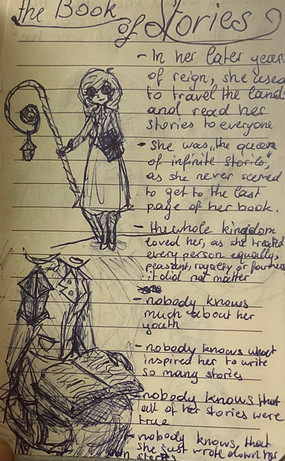 the Book
of Stories
- In her later years
of reign, she used
to travel the lands
and read her
stories to everyone
- She was "the queen
of infinite stories",
as she never seemed
to get to the last
page of her book.
- the whole kingdom
loved her, as she treated
every person equally,
peasant, royalty or
it did not matter
- nobody knows
much about her
youth
- nobody knows what
inspired her to write
so many stories
- nobody knows that
all of her stories were
true
- nobody knows, that
she just wrote down her
own stories